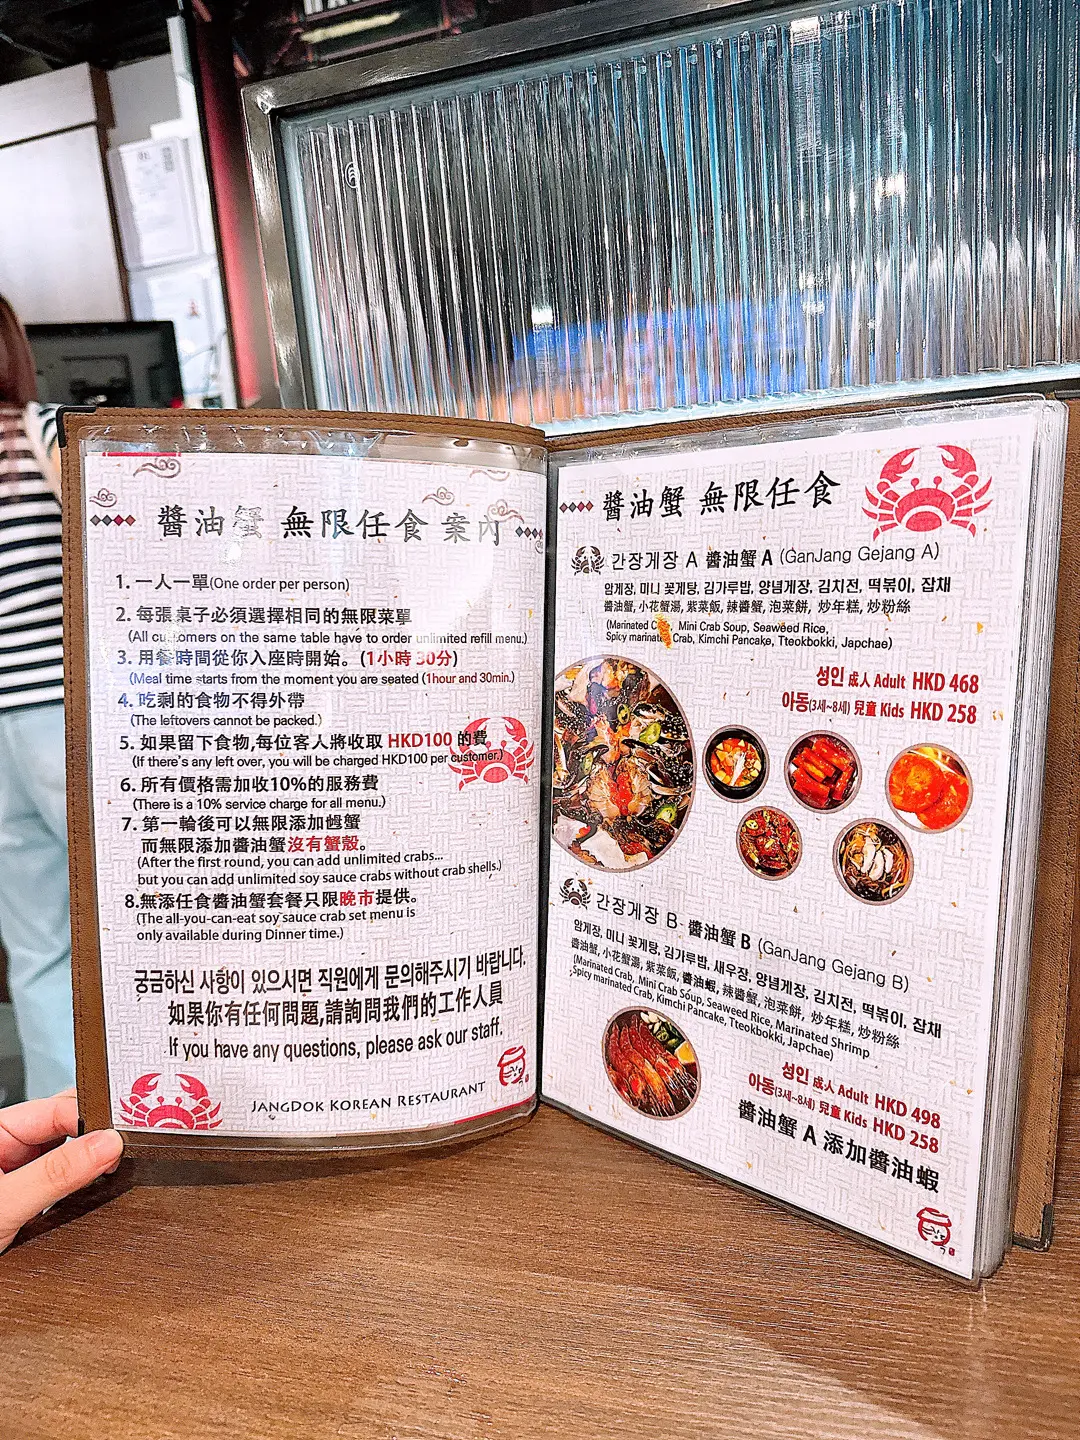 醬油蟹 無限任食 案內
1. 一人一單(One order per person)
2. 每張桌子必須選擇相同的無限菜單
(All customers on the same table have to order unlimited refill menu.)
3. 用餐時間從你入座時開始。(1小時 30分)
(Meal time starts from the moment you are seated (1hour and 30min.)
4. 吃剩的食物不得外帶
(The leftovers cannot be packed.)
5. 如果留下食物,每位客人將收取 HKD100 的費
(If there's any left over, you will be charged HKD100 per customer.)
6. 所有價格需加收10%的服務費
(There is a 10% service charge for all menu.)
7. 第一輪後可以無限添加螃蟹
而無限添加醬油蟹沒有蟹殼。
(After the first round, you can add unlimited crabs...
but you can add unlimited soy sauce crabs without crab shells.)
8.無添任食醬油蟹套餐只限晚市提供。
(The all-you-can-eat soy sauce crab set menu is
only available during Dinner time.)
궁금하신 사항이 있으시면 직원에게 문의해주시기 바랍니다.
如果你有任何問題,請詢問我們的工作人員
If you have any questions, please ask our staff.
JANGDOK KOREAN RESTAURANT
醬油蟹 無限任食
간장게장 A 醬油蟹 A (GanJang Gejang A)
암게장, 미니 꽃게탕, 김가루밥, 양념게장, 김치전, 떡볶이, 잡채
醬油蟹, 小花蟹湯, 紫菜飯, 辣醬蟹, 泡菜餅, 炒年糕, 炒粉絲
(Marinated Mini Crab Soup, Seaweed Rice,
Spicy marinated Crab, Kimchi Pancake, Tteokbokki, Japchae)
성인 成人 Adult HKD 468
아동(3세~8세) 兒童 Kids HKD 258
간장게장 B 醬油蟹 B (GanJang Gejang B)
암게장, 미니 꽃게탕, 김가루밥, 새우장, 양념게장, 김치전, 떡볶이, 잡채
醬油蟹, 小花蟹湯, 紫菜飯, 醬油蝦, 辣醬蟹, 泡菜餅, 炒年糕, 炒粉絲
(Marinated Crab, Mini Crab Soup, Seaweed Rice, Marinated Shrimp
Spicy marinated Crab, Kimchi Pancake, Tteokbokki, Japchae)
성인 成人 Adult HKD 498
아동(3세~8세) 兒童 Kids HKD 258
醬油蟹 A 添加醬油蝦